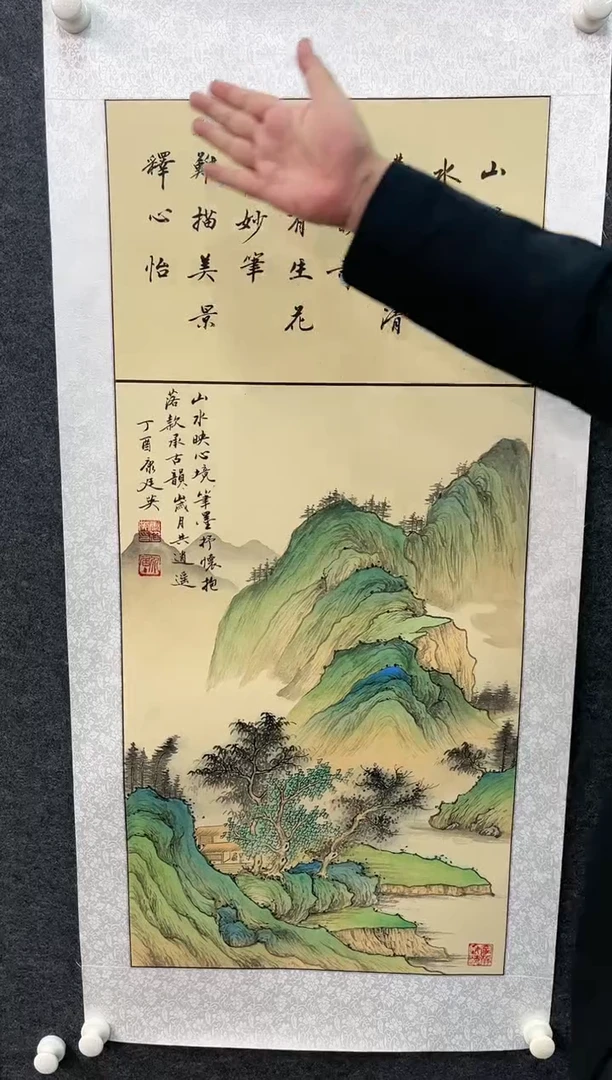 山
水
清
有生花
妙筆
難描美景
釋心怡
山水映心境筆墨抒懷抱
落款承古韻歲月共逍遥
丁酉康廷英